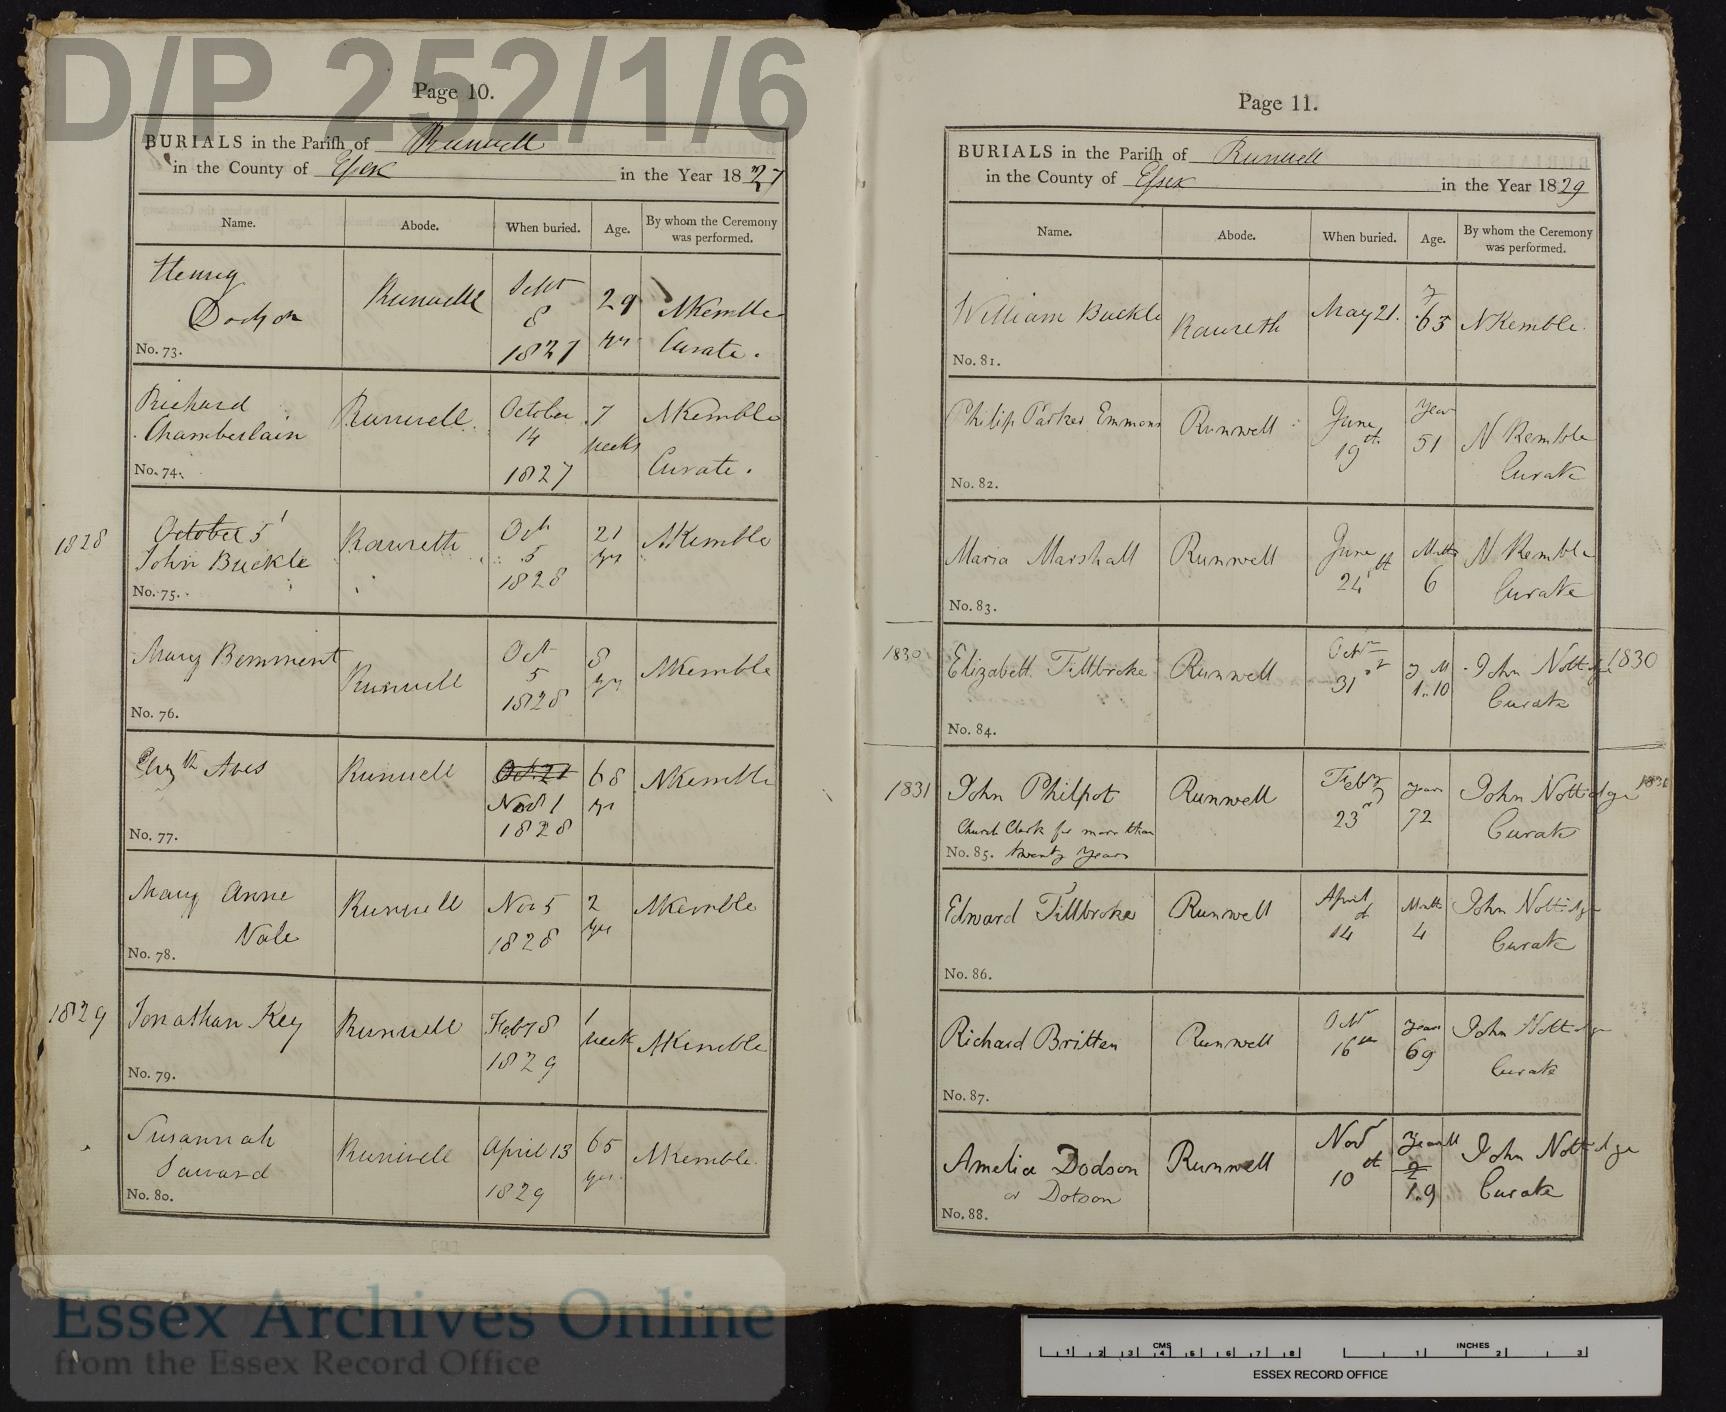 D/P 252/1/6
Page 10.
BURIALS in the Parish of Runwell
in the County of Essex in the Year 1827
Name. Abode. When buried. Age. By whom the Ceremony was performed.
Henry
Dodson
Runwell
Sept
8
1827
29
yrs
N Kemble
Curate.
No. 73.
Richard
Chamberlain
Runwell
October
14
1827
7
weeks
N Kemble
Curate.
No. 74.
1828
October 5
John Buckle
Rawreth
Oct
5
1828
21
yrs
N Kemble
No. 75.
Mary Bemment
Runwell
Oct
5
1828
8
yrs
N Kemble
No. 76.
Elizth Aves
Runwell
Oct. 21
Nov 1
1828
68
yrs
N Kemble
No. 77.
Mary Anne
Nale
Runwell
Nov 5
1828
2
yrs
N Kemble
No. 78.
1829
Jonathan Key
Runwell
Feby 8
1829
1
week
N Kemble
No. 79.
Susannah
Saward
Runwell
April 13
1829
65
yrs.
N Kemble.
No. 80.
Page 11.
BURIALS in the Parish of Runwell
in the County of Essex in the Year 1829
Name. Abode. When buried. Age. By whom the Ceremony was performed.
William Buckle
Rawreth
May 21.
y
65
N Kemble.
No. 81.
Philip Parker Emmons
Runwell
June
19th
Year
51
N Kemble
Curate
No. 82.
Maria Marshall
Runwell
June
24th
Mths
6
N Kemble
Curate
No. 83.
1830
Elizabeth Tillbroke
Runwell
Octr
31st
Y M
1..10
John Nottidge
Curate
1830
No. 84.
1831
John Philpot
Church Clerk for more than
twenty years
Runwell
Feby
23rd
years
72
John Nottidge
Curate
No. 85.
Edward Tillbroke
Runwell
April
14th
Mnths
4
John Nottidge
Curate
No. 86.
Richard Britten
Runwell
Octr
16th
years
69
John Nottidge
Curate
No. 87.
Amelia Dodson
or Dotson
Runwell
Novr
10th
Year M
2
1.9
John Nottidge
Curate
No. 88.
Essex Archives Online
from the Essex Record Office
CMS
1 2 3 4 5 6 7 8
INCHES
1 2 3
ESSEX RECORD OFFICE